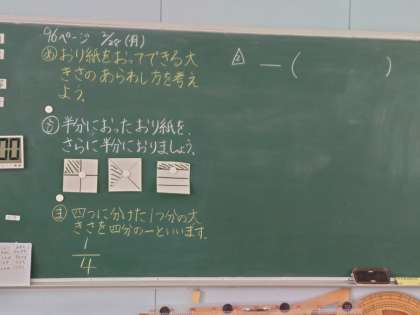 96ページ 2/28(月)
め おり紙をおってできる大
きさのあらわし方を考え
よう。
も 半分におったおり紙を、
さらに半分におりましょう。
ま 四つに分けた1つ分の大
きさを四分の一といいます。
1
4
2 ー(　　　)
00